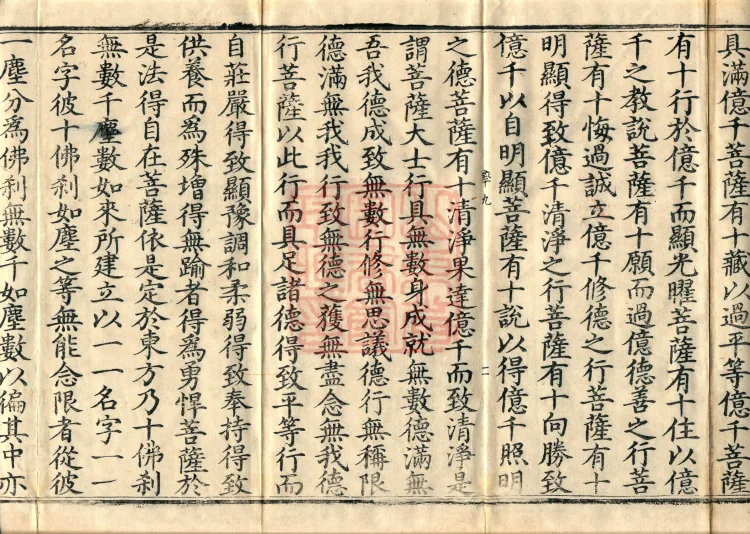 具滿億千菩薩有十藏以過平等億千菩薩
有十行於億千而顯光曜菩薩有十住以億
千之教說菩薩有十願而過億德善之行菩
薩有十悔過誠立億千修德之行菩薩有十
明顯得致億千清淨之行菩薩有十向勝致
億千以自明顯菩薩有十說以得億千照明
之德菩薩有十清淨果達億千而致清淨是
謂菩薩大士行具無數身成就無數德滿無
吾我德成致無數行修無思議德行無稱限
德滿無我我行致無德之獲無盡念無我德
行菩薩以此行而具足諸德得致平等行而
自莊嚴得致顯豫調和柔弱得致奉持得致
供養而為殊增得無踰者得為勇悍菩薩於
是法得自在菩薩依是定於東方乃十佛刹
無數千塵數如來所建立以一一名字一一
名字彼十佛刹如塵之等無能念限者從彼
一塵分為佛刹無數千如塵數以徧其中亦